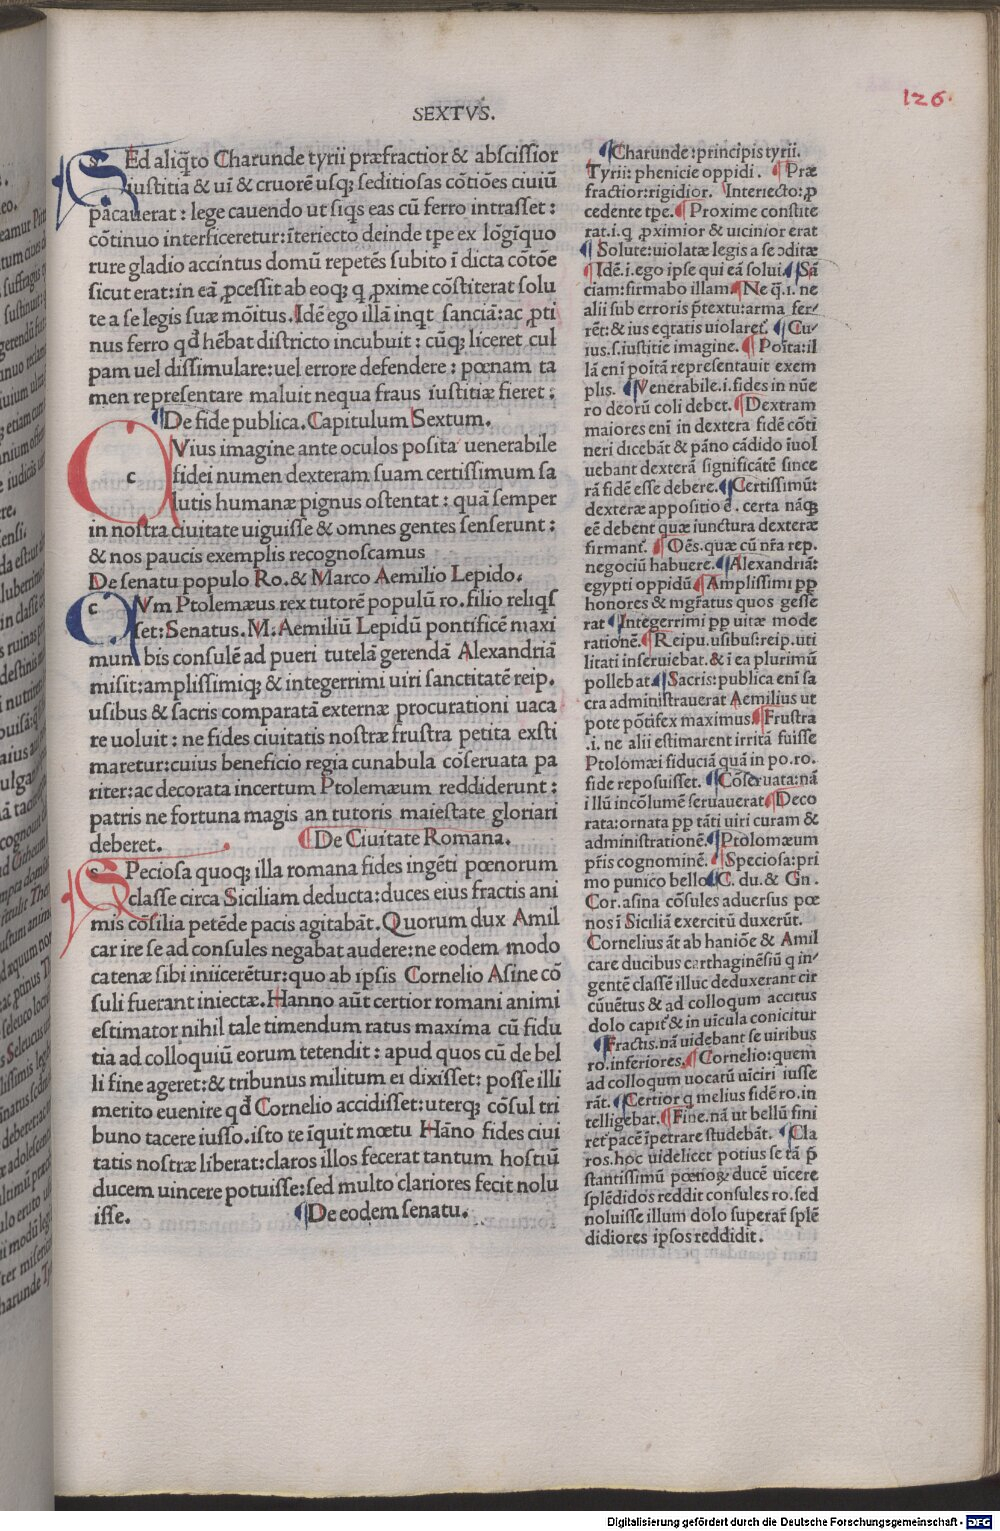 126.
SEXTVS.
SEd aliq̃to Charunde tyrii præfractior & abſciſſior
iuſtitia & uĩ & cruorẽ uſq; ſeditioſas cõtiões ciuiũ
pacauerat : lege cauendo ut ſiqs eas cũ ferro intraſſet :
cõtinuo interficeretur:ĩteriecto deinde tp̃e ex lõgĩquo
rure gladio accintus domũ repetẽs ſubito ĩ dicta cõtõe
ſicut erat:in eã ꝓceſſit ab eoq; q ꝓxime cõſtiterat ſolu
te a ſe legis ſuæ mõitus. Idẽ ego illã inqt ſanciã:ac ꝓti
nus ferro qđ hẽbat diſtricto incubuit : cũq; liceret cul
pam uel diſſimulare:uel errore defendere : pœnam ta
men repreſentare maluit nequa fraus iuſtitiæ fieret :
¶De fide publica. Capitulum Sextum.
cVius imagine ante oculos poſita uenerabile
fidei numen dexteram ſuam certiſſimum ſa
lutis humanæ pignus oſtentat : quã ſemper
in noſtra ciuitate uiguiſſe & omnes gentes ſenſerunt :
& nos paucis exemplis recognoſcamus
De ſenatu populo Ro. & Marco Aemilio Lepido.
cVm Ptolemæus rex tutorẽ populũ ro. filio reliqſ
ſet: Senatus. M. Aemiliũ Lepidũ pontificẽ maxi
mum bis conſulẽ ad pueri tutelã gerendã Alexandriã
miſit:ampliſſimiq; & integerrimi uiri ſanctitatẽ reip.
uſibus & ſacris comparatã externæ procurationi uaca
re uoluit : ne fides ciuitatis noſtræ fruſtra petita exſti
maretur:cuius beneficio regia cunabula cõſeruata pa
riter:ac decorata incertum Ptolemæum reddiderunt :
patris ne fortuna magis an tutoris maieſtate gloriari
deberet. ¶De Ciuitate Romana.
SPecioſa quoq; illa romana fides ingẽti pœnorum
claſſe circa Siciliam deducta:duces eius fractis ani
mis cõſilia petẽde pacis agitabãt. Quorum dux Amil
car ire ſe ad conſules negabat audere:ne eodem modo
catenæ ſibi iniicerẽtur:quo ab ipſis Cornelio Aſine cõ
ſuli fuerant iniectæ. Hanno aũt certior romani animi
eſtimator nihil tale timendum ratus maxima cũ fidu
tia ad colloquiũ eorum tetendit : apud quos cũ de bel
li fine ageret:& tribunus militum ei dixiſſet: poſſe illi
merito euenire qđ Cornelio accidiſſet:uterq; cõſul tri
buno tacere iuſſo. iſto te ĩquit mœtu Hãno fides ciui
tatis noſtræ liberat:claros illos fecerat tantum hoſtiũ
ducem uincere potuiſſe:ſed multo clariores fecit nolu
iſſe. ¶De eodem ſenatu.
¶Charunde:principis tyrii.
Tyrii: phenicie oppidi. ¶ Præ
fractior:rigidior. Interiecto:ꝓ
cedente tp̃e. ¶ Proxime conſtite
rat.i.q ꝓximior & uicinior erat
¶ Solute:uiolatæ legis a ſe ↄditæ
¶ Idẽ.i.ego ipſe qui eã ſolui. ¶ Sã
ciam:firmabo illam. ¶ Ne q̃.i. ne
alii ſub erroris p̃textu:arma fer/
rẽt:& ius eqtatis uiolaret̃. ¶ Cu/
ius.ſ.iuſtitie imagine. ¶ Poſita:il
lã enĩ poſitã repreſentauit exem
plis. ¶ Venerabile.i.fides in nũe
ro deorũ coli debet. ¶ Dextram
maiores enĩ in dextera fidẽ cõti
neri dicebãt & pãno cãdido ĩuol
uebant dexterã ſignificãtẽ ſince
rã fidẽ eſſe debere. ¶ Certiſſimũ:
dexteræ appoſitio ẽ. certa nãq;
eẽ debent quæ iunctura dexteræ
firmant̃. ¶ Oẽs.quæ cũ nr̃a rep.
negociũ habuere. ¶ Alexandriã:
egypti oppidũ ¶ Ampliſſimi pp
honores & mgratus quos geſſe
rat ¶ Integerrimi pp uitæ mode
rationẽ. ¶ Reipu.uſibus:reip.uti
litati inſeruiebat.& ĩ ea plurimũ
pollebat ¶ Sacris:publica enĩ ſa
cra adminiſtrauerat Aemilius ut
pote põtifex maximus. ¶ Fruſtra
.i. ne alii eſtimarent irritã fuiſſe
Ptolomæi fiduciã quã in po.ro.
fide repoſuiſſet. ¶ Cõſeruata:nã
i llũ incõlumẽ ſeruauerat ¶ Deco
rata:ornata pp tãti uiri curam &
adminiſtrationẽ. ¶ Ptolomæum
pr̃is cognominẽ. ¶ Specioſa:pri
mo punico bello ¶ C. du. & Gn.
Cor.aſina cõſules aduerſus pœ
nos ĩ Siciliã exercitũ duxerũt.
Cornelius ãt ab haniõe & Amil
care ducibus carthaginẽſiũ q in/
gentẽ claſſẽ illuc deduxerant cir
cũuẽtus & ad colloqum accitus
dolo capit̃ & in uĩcula conicitur
¶Fractis.nã uidebant ſe uiribus
ro.inferiores. ¶ Cornelio:quem
ad colloqum uocatũ uĩciri iuſſe
rãt. ¶ Certior q melius fidẽ ro.in
telligebat. ¶ Fine.nã ut bellũ fini
ret̃ pacẽ ĩpetrare ſtudebãt. ¶ Cla
ros.hoc uidelicet potius ſe tã p̃
ſtantiſſimũ pœnoꝝ ducẽ uĩcere
ſplẽdidos reddit conſules ro.ſed
noluiſſe illum dolo ſuperar̃ ſplẽ
didiores ipſos reddidit.
Digitalisierung gefördert durch die Deutsche Forschungsgemeinschaft - DFG